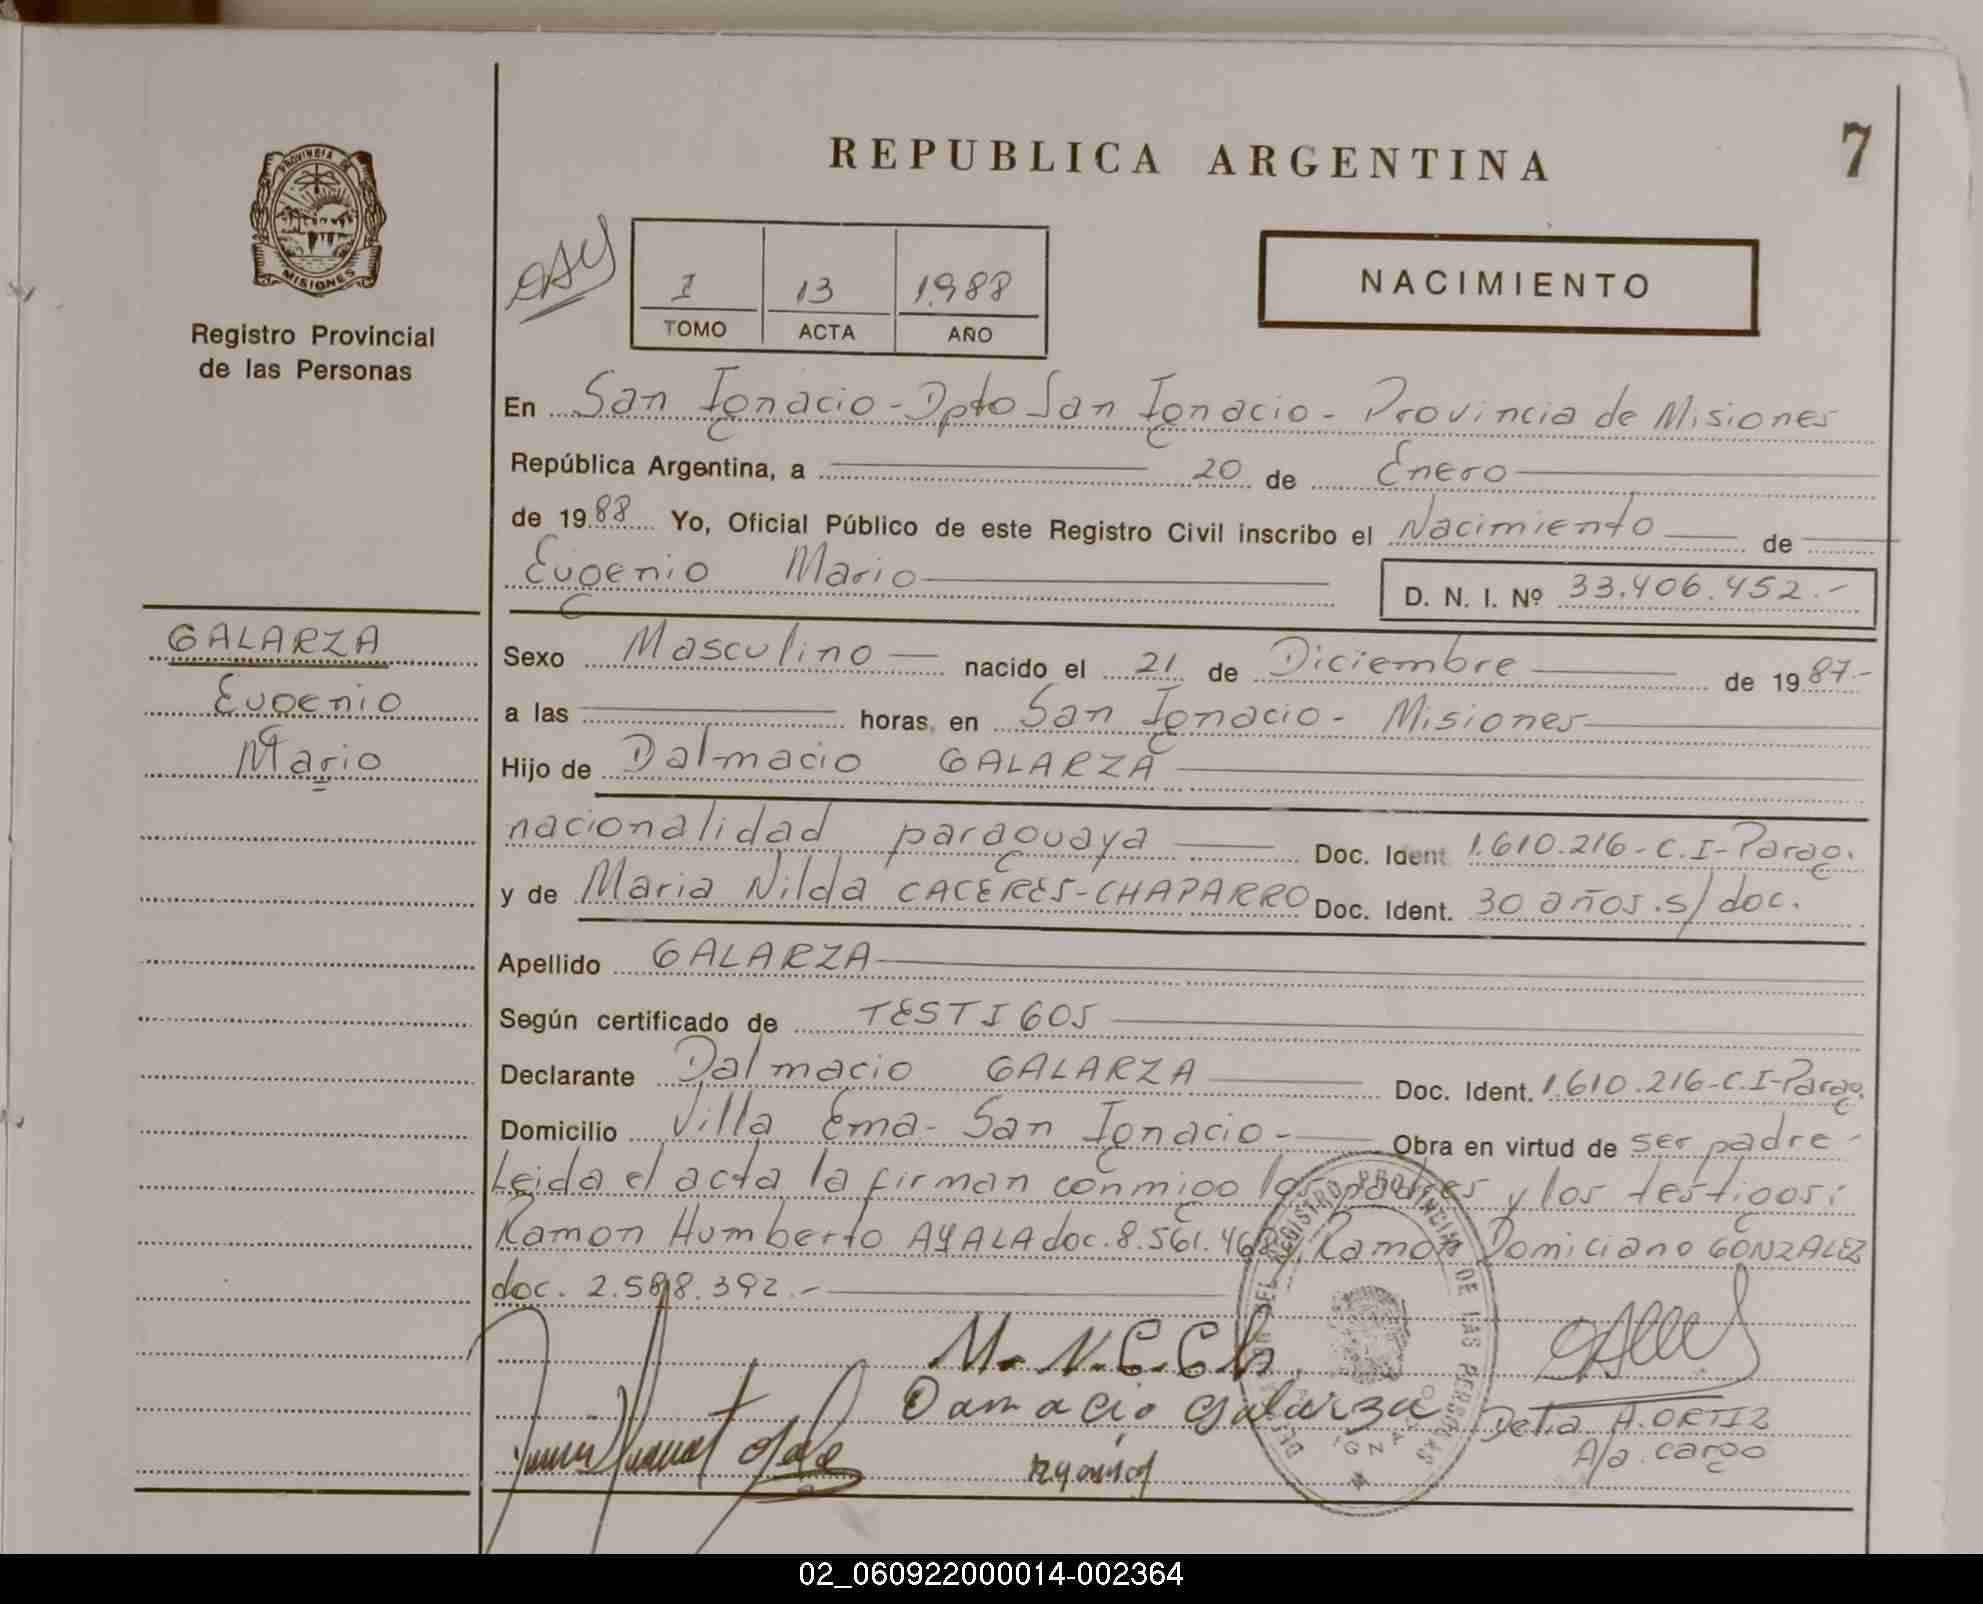 REPUBLICA ARGENTINA
7
PROVINCIA DE
MISIONES
Registro Provincial
de las Personas
I 13 1988
TOMO ACTA AÑO
NACIMIENTO
En San Ignacio - Dpto San Ignacio - Provincia de Misiones
República Argentina, a 20 de Enero
de 1988 Yo, Oficial Público de este Registro Civil inscribo el Nacimiento de
Eugenio Mario D. N. I. Nº 33.406.452.-
GALARZA
Eugenio
Mario
Sexo Masculino nacido el 21 de Diciembre de 1987.-
a las horas, en San Ignacio - Misiones
Hijo de Dalmacio GALARZA
nacionalidad paraguaya Doc. Ident. 1.610.216-C.I-Parag.
y de Maria Nilda CACERES-CHAPARRO Doc. Ident. 30 años.s/doc.
Apellido GALARZA
Según certificado de TESTIGOS
Declarante Dalmacio GALARZA Doc. Ident. 1.610.216-C.I-Parag.
Domicilio Villa Ema - San Ignacio - Obra en virtud de ser padre-
Leida el acta la firman conmigo los padres y los testigos:
Ramon Humberto AYALA doc. 8.561.468, Ramon Domiciano GONZALEZ
doc. 2.598.392.-
M. N. C. Ch.
Damacio Galarza
Delia A. ORTIZ
A/a. cargo
02_060922000014-002364